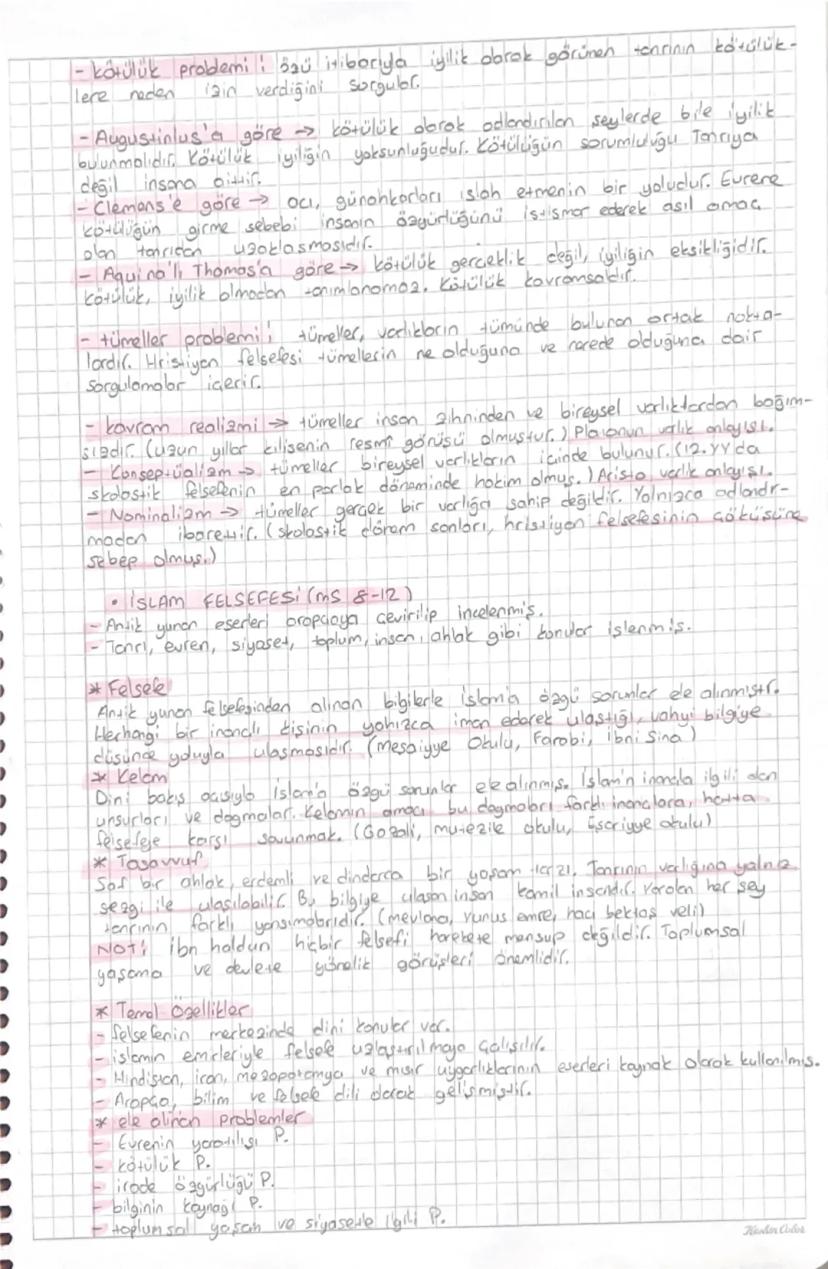 - kötülük problemi: özü itibarıyla iyilik olarak görünen tanrının kötülük-
lere neden izin verdiğini sorgular.
- Augustinius'a göre → kötülük olarak adlandırılan şeylerde bile iyilik
bulunmalıdır. Kötülük iyiliğin yoksunluğudur. Kötülüğün sorumluluğu Tanrıya
değil insana aittir.
- Clemens'e göre → acı, günahkarları ıslah etmenin bir yoludur. Evrene
kötülüğün girme sebebi insanın özgürlüğünü istismar ederek asıl amaç
olan tanrıdan uzaklaşmasıdır.
- Aquino'lı Thomas'a göre → kötülük gerçeklik değil, iyiliğin eksikliğidir.
Kötülük, iyilik olmadan tanımlanamaz. Kötülük kavramsaldır.
- tümeller problemi: tümeller, varlıkların tümünde bulunan ortak nokta-
lardır. Hristiyan felsefesi tümellerin ne olduğuna ve nerede olduğuna dair
sorgulamalar içerir.
- kavram realizmi → tümeller insan zihninden ve bireysel varlıklardan bağım-
sızdır. (uzun yıllar kilisenin resmi görüşü olmuştur.) Platonun varlık anlayışı.
- Konseptüalizm → tümeller bireysel varlıkların içinde bulunur. (12. YY da
skolostik felsefenin en parlak döneminde hakim olmuş.) Aristo varlık anlayışı.
- Nominalizm → tümeller gerçek bir varlığa sahip değildir. Yalnızca adlandır-
madan ibarettir. (skolostik dönem sonları, hristiyan felsefesinin çöküşüne
sebep olmuş.)
• İSLAM FELSEFESİ (MS 8-12)
- Antik yunan eserleri arapçaya çevirilip incelenmiş.
- Tanrı, evren, siyaset, toplum, insan, ahlak gibi konular işlenmiş.
* Felsefe
Antik yunan felsefesinden alınan bilgilerle islam'a özgü sorunlar ele alınmıştır.
Herhangi bir inançlı kişinin yalnızca iman ederek ulaştığı, vahyi bilgiye
düşünce yoluyla ulaşmasıdır. (Meşaiyye Okulu, Farobi, ibni Sina)
* Kelam
Dini bakış açısıyla islam'a özgü sorunlar ele alınmış. İslam'ın inançla ilgili olan
unsurları ve dogmalar. Kelamın amacı bu dogmaları farklı inançlara, hatta
felsefeye karşı savunmak. (Gazali, mutezile okulu, Eşariyye okulu)
* Tasavvuf
Saf bir ahlak, erdemli ve dindarca bir yaşam tarzı. Tanrının varlığına yalnız
sezgi ile ulaşılabilir. Bu bilgiye ulaşan insan kamil insandır. Varolan her şey
tanrının farklı yansımalarıdır. (mevlana, yunus emre, hacı bektaş veli)
NOT: ibn haldun hiçbir felsefi harekete mensup değildir. Toplumsal
yaşama ve devlete yönelik görüşleri önemlidir.
* Temel Özellikler
- felsefenin merkezinde dini konular var.
- islamın emirleriyle felsefe uzlaştırılmaya çalışılır.
- Hindistan, iran, mezopotamya ve mısır uygarlıklarının eserleri kaynak olarak kullanılmış.
- Arapça, bilim ve felsefe dili olarak gelişmiştir.
* ele alınan problemler
- Evrenin yaratılışı P.
- kötülük P.
- irade özgürlüğü P.
- bilginin kaynağı P.
- toplumsal yaşam ve siyasetle ilgili P.